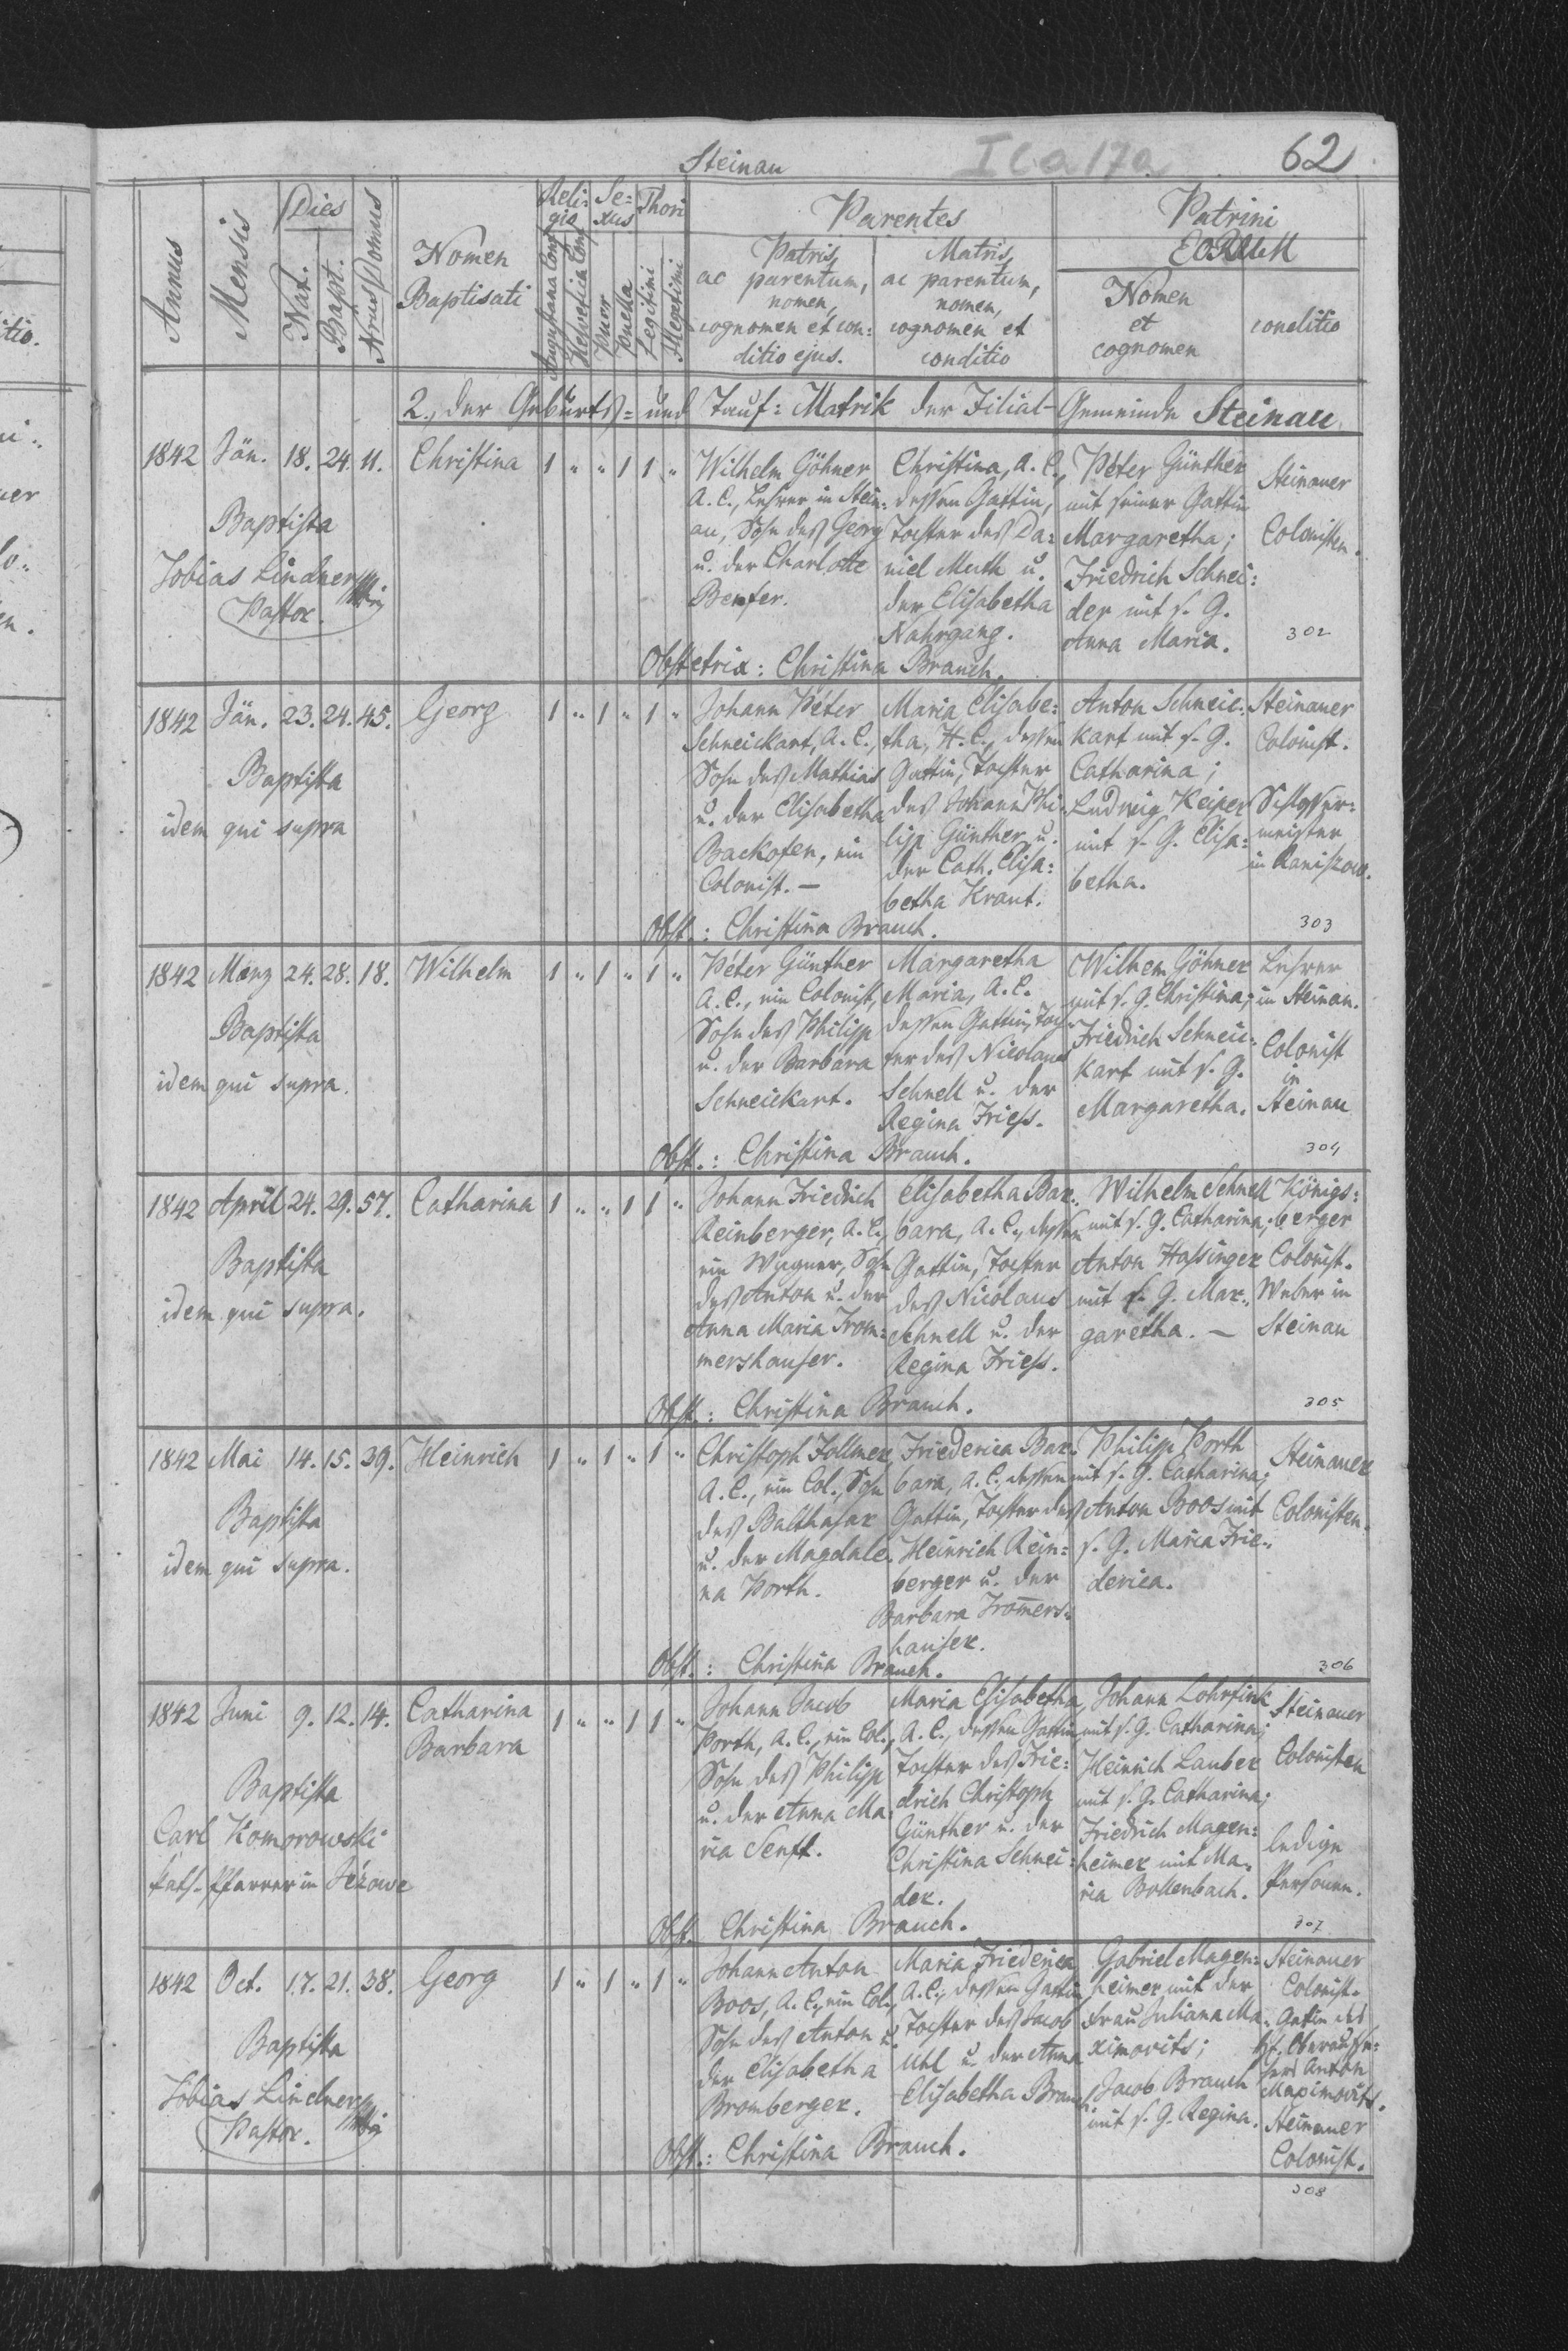 Steinau
I C a 17a
62
Annus
Mensis
Dies
Nat.
Bapt.
Nrus Domus
Nomen
Baptisati
Reli-
gio
Augustana Conf
Helvetica Conf
Se-
xus
puer
puella
Thori
Legitimi
Illegetimi
Parentes
Patris
ac parentum,
nomen,
cognomen et con-
ditio ejus.
Matris
ac parentum,
nomen,
cognomen et
conditio
Patrini
EORUM
Nomen
et
cognomen
conditio
2., der Geburts- und Tauf: Matrik der Filial-Gemeinde Steinau
1842 Jän. 18. 24. 11. Christina 1 " " 1 1 "
Baptista
Tobias Lindner
Pastor.
Wilhelm Göhner
A. C., Lehrer in Stein-
au, Sohn des Georg
u. der Charlotte
Benfer.
Christina, A. C.,
dessen Gattin,
Tochter des Da-
niel Muth u.
der Elisabetha
Nahrgang.
Péter Günther
mit seiner Gattin
Margaretha;
Friedrich Schnei-
der mit s. G.
Anna Maria.
Steinauer
Colonisten.
302
Obstetrix: Christina Brauch.
1842 Jän. 23. 24. 45. Georg 1 " 1 " 1 "
Baptista
idem qui supra
Johann Péter
Schneickart, A. C.,
Sohn des Mathias
u. der Elisabetha
Backofen, ein
Colonist. —
Maria Elisabe-
tha, H. C., dessen
Gattin, Tochter
des Johann Phi-
lipp Günther u.
der Cath. Elisa-
betha Kraut.
Anton Schneic-
kart mit s. G.
Catharina;
Ludwig Keiper
mit s. G. Elisa-
betha.
Steinauer
Colonist.
Schlosser-
meister
in Raniszow.
303
Obst.: Christina Brauch.
1842 März 24. 28. 18. Wilhelm 1 " 1 " 1 "
Baptista
idem qui supra.
Péter Günther
A. C., ein Colonist,
Sohn des Philipp
u. der Barbara
Schneickart.
Margaretha
Maria, A. C.
dessen Gattin, Toch-
ter des Nicolaus
Schnell u. der
Regina Friess.
Wilhem Göhner
mit s. G. Christina;
Friedrich Schneic-
kart mit s. G.
Margaretha.
Lehrer
in Steinau.
Colonist
in
Steinau
304
Obst.: Christina Brauch.
1842 April 24. 29. 57. Catharina 1 " " 1 1 "
Baptista
idem qui supra.
Johann Friedrich
Reinberger, A. C.,
ein Wagner, Sohn
des Anton u. der
Anna Maria From-
mershauser.
Elisabetha Bar-
bara, A. C., dessen
Gattin, Tochter
des Nicolaus
Schnell u. der
Regina Friess.
Wilhelm Schnell
mit s. G. Catharina;
Anton Hassinger
mit s. G. Mar-
garetha. —
Königs-
berger
Colonist.
Weber in
Steinau
305
Obst.: Christina Brauch.
1842 Mai 14. 15. 39. Heinrich 1 " 1 " 1 "
Baptista
idem qui supra.
Christoph Follmer
A. C., ein Col., Sohn
des Balthasar
u. der Magdale-
na Porth.
Friederica Bar-
bara, A. C., dessen
Gattin, Tochter des
Heinrich Rein-
berger u. der
Barbara Fromers-
hauser.
Philipp Porth
mit s. G. Catharina;
Anton Boos mit
s. G. Maria Frie-
derica.
Steinauer
Colonisten.
306
Obst.: Christina Brauch.
1842 Juni 9. 12. 14. Catharina
Barbara 1 " " 1 1 "
Baptista
Carl Komorowski
kath. Pfarrer in Jeżowe
Johann Jacob
Porth, A. C., ein Col.,
Sohn des Philipp
u. der Anna Ma-
ria Senft.
Maria Elisabetha,
A. C., dessen Gattin
Tochter des Frie-
drich Christoph
Günther u. der
Christina Schnei-
der.
Johann Lohrfink
mit s. G. Catharina;
Heinrich Lauber
mit s. G. Catharina;
Friedrich Magen-
heimer mit Ma-
ria Bollenbach.
Steinauer
Colonisten
ledige
Personen.
307
Obst. Christina Brauch.
1842 Oct. 17. 21. 38. Georg 1 " 1 " 1 "
Baptista
Tobias Lindner
Pastor.
Johann Anton
Boos, A. C., ein Col.,
Sohn des Anton u.
der Elisabetha
Bromberger.
Maria Friederica
A. C., dessen Gattin
Tochter des Jacob
Uhl u. der Anna
Elisabetha Brauch
Gabriel Magen-
heimer mit der
Frau Juliana Ma-
ximovits;
Jacob Brauch
mit s. G. Regina.
Steinauer
Colonist.
Gattin des
Anton
Maximovits.
Steinauer
Colonist.
308
Obst.: Christina Brauch.